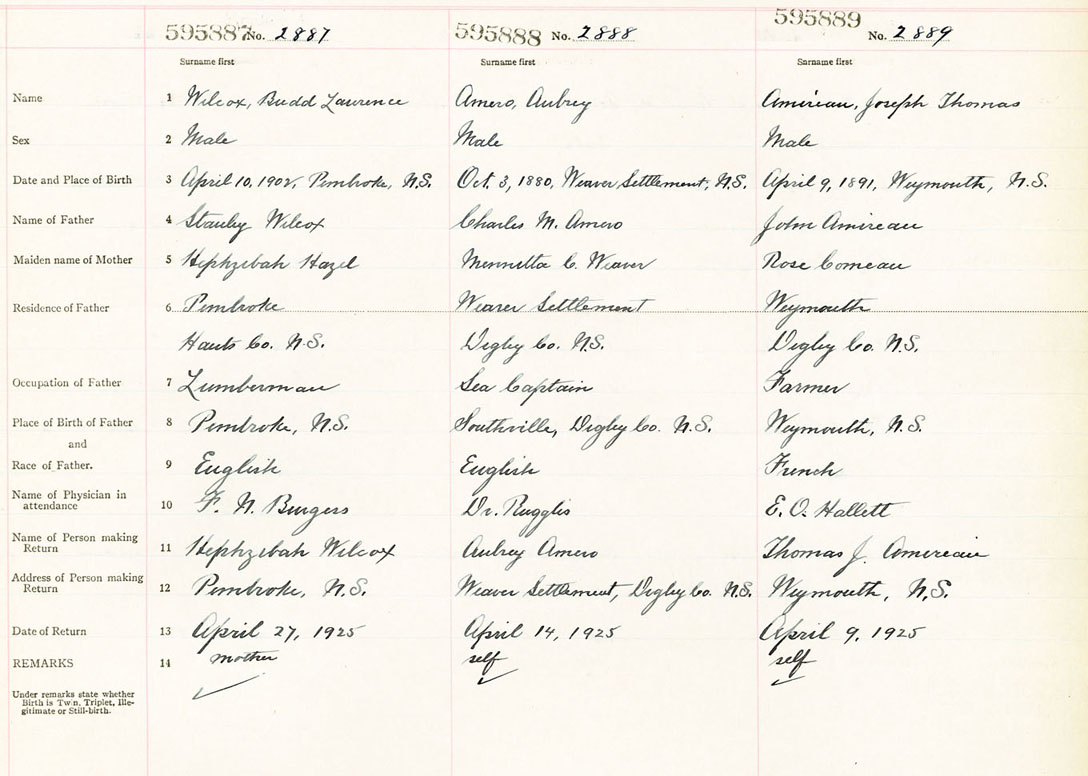 595887 No. 2887 595888 No. 2888 595889 No. 2889
Surname first Surname first Surname first
Name 1 Wilcox, Budd Lawrence Amero, Aubrey Amireau, Joseph Thomas
Sex 2 Male Male Male
Date and Place of Birth 3 April 10, 1902, Pembroke, N.S. Oct. 3, 1880, Weaver Settlement, N.S. April 9, 1891, Weymouth, N.S.
Name of Father 4 Stanley Wilcox Charles M. Amero John Amireau
Maiden name of Mother 5 Hephzebah Hazel Mennetta C. Weaver Rose Comeau
Residence of Father 6 Pembroke Weaver Settlement Weymouth
Hants Co. N.S. Digby Co. N.S. Digby Co. N.S.
Occupation of Father 7 Lumberman Sea Captain Farmer
Place of Birth of Father 8 Pembroke, N.S. Southville, Digby Co. N.S. Weymouth, N.S.
and
Race of Father. 9 English English French
Name of Physician in
attendance 10 F. N. Burgers Dr. Ruggles E. O. Hallett
Name of Person making
Return 11 Hephzebah Wilcox Aubrey Amero Thomas J. Amereau
Address of Person making
Return 12 Pembroke, N.S. Weaver Settlement, Digby Co. N.S. Weymouth, N.S.
Date of Return 13 April 27, 1925 April 14, 1925 April 9, 1925
REMARKS 14 mother self self
Under remarks state whether
Birth is Twin, Triplet, Ille-
gitimate or Still-birth.